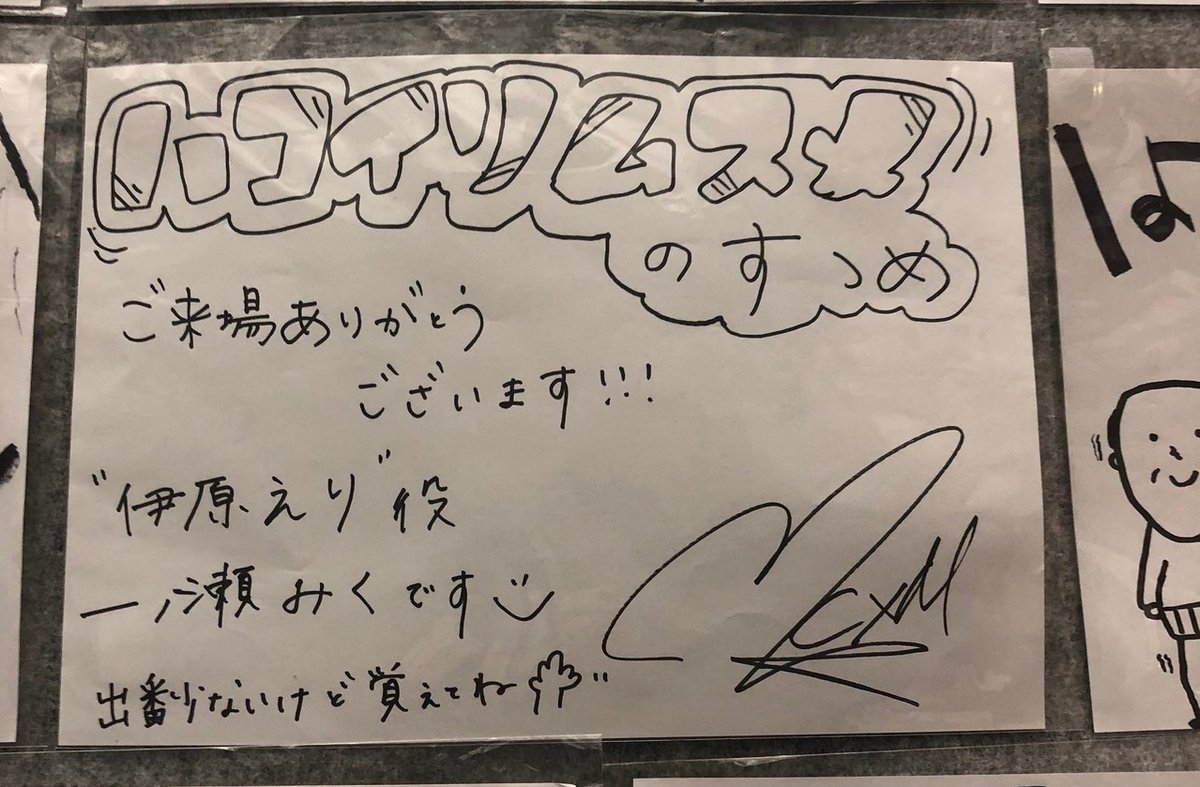 ハコイリムスメ
のすゝめ
ご来場ありがとう
ございます!!!
"伊原えり"役
一ノ瀬みくです
出番少ないけど覚えてね
は